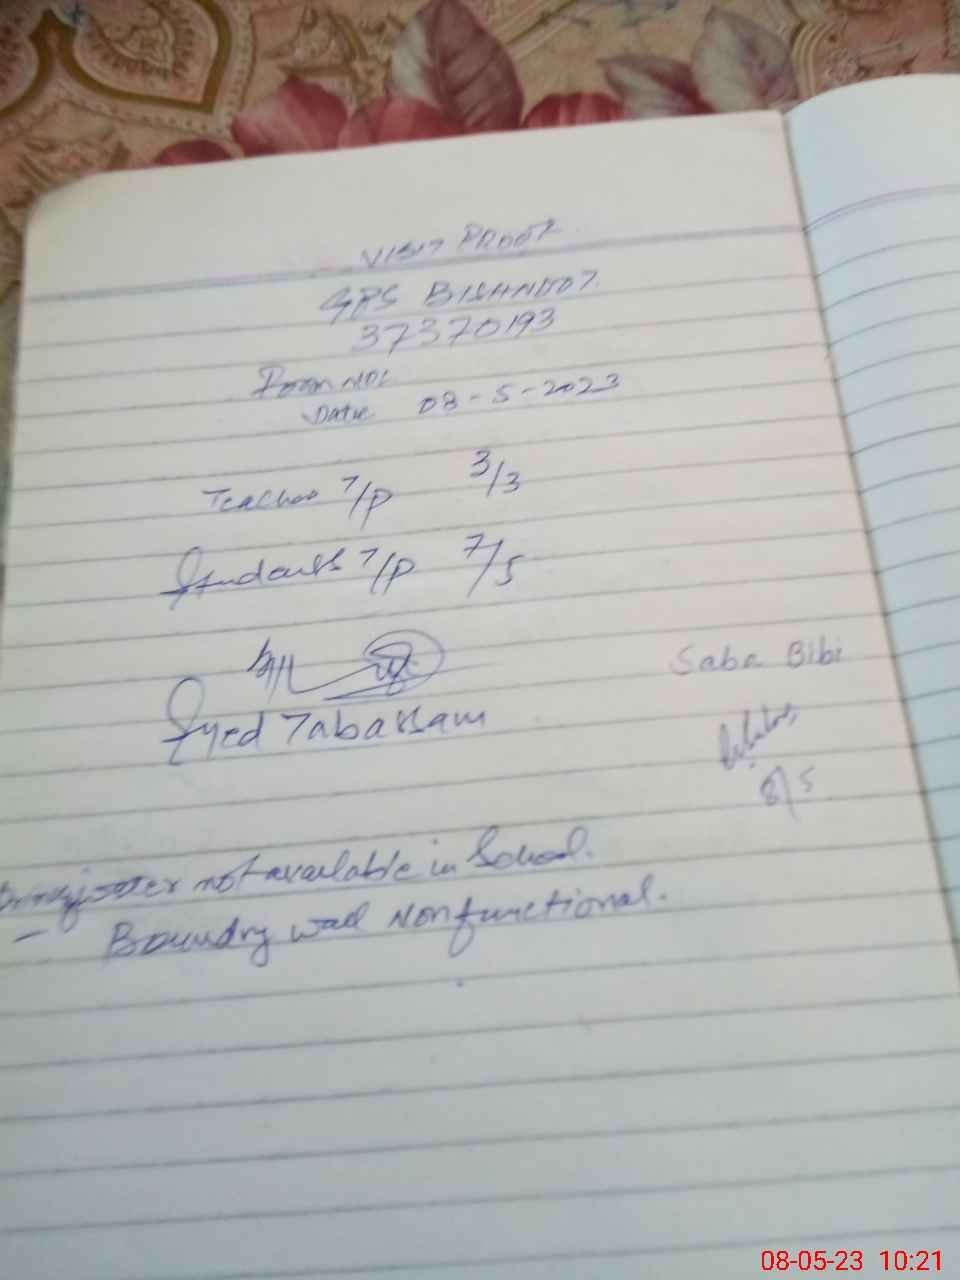 VISIT PROOF
GPS BISHNDOT
37370193
Form No1
Date 08-5-2023
Teacher T/P 3/3
Students T/P 7/5
Syed Tabassam
Saba Bibi
8/5
water not available in School.
- Boundry wall Nonfunctional.
08-05-23 10:21